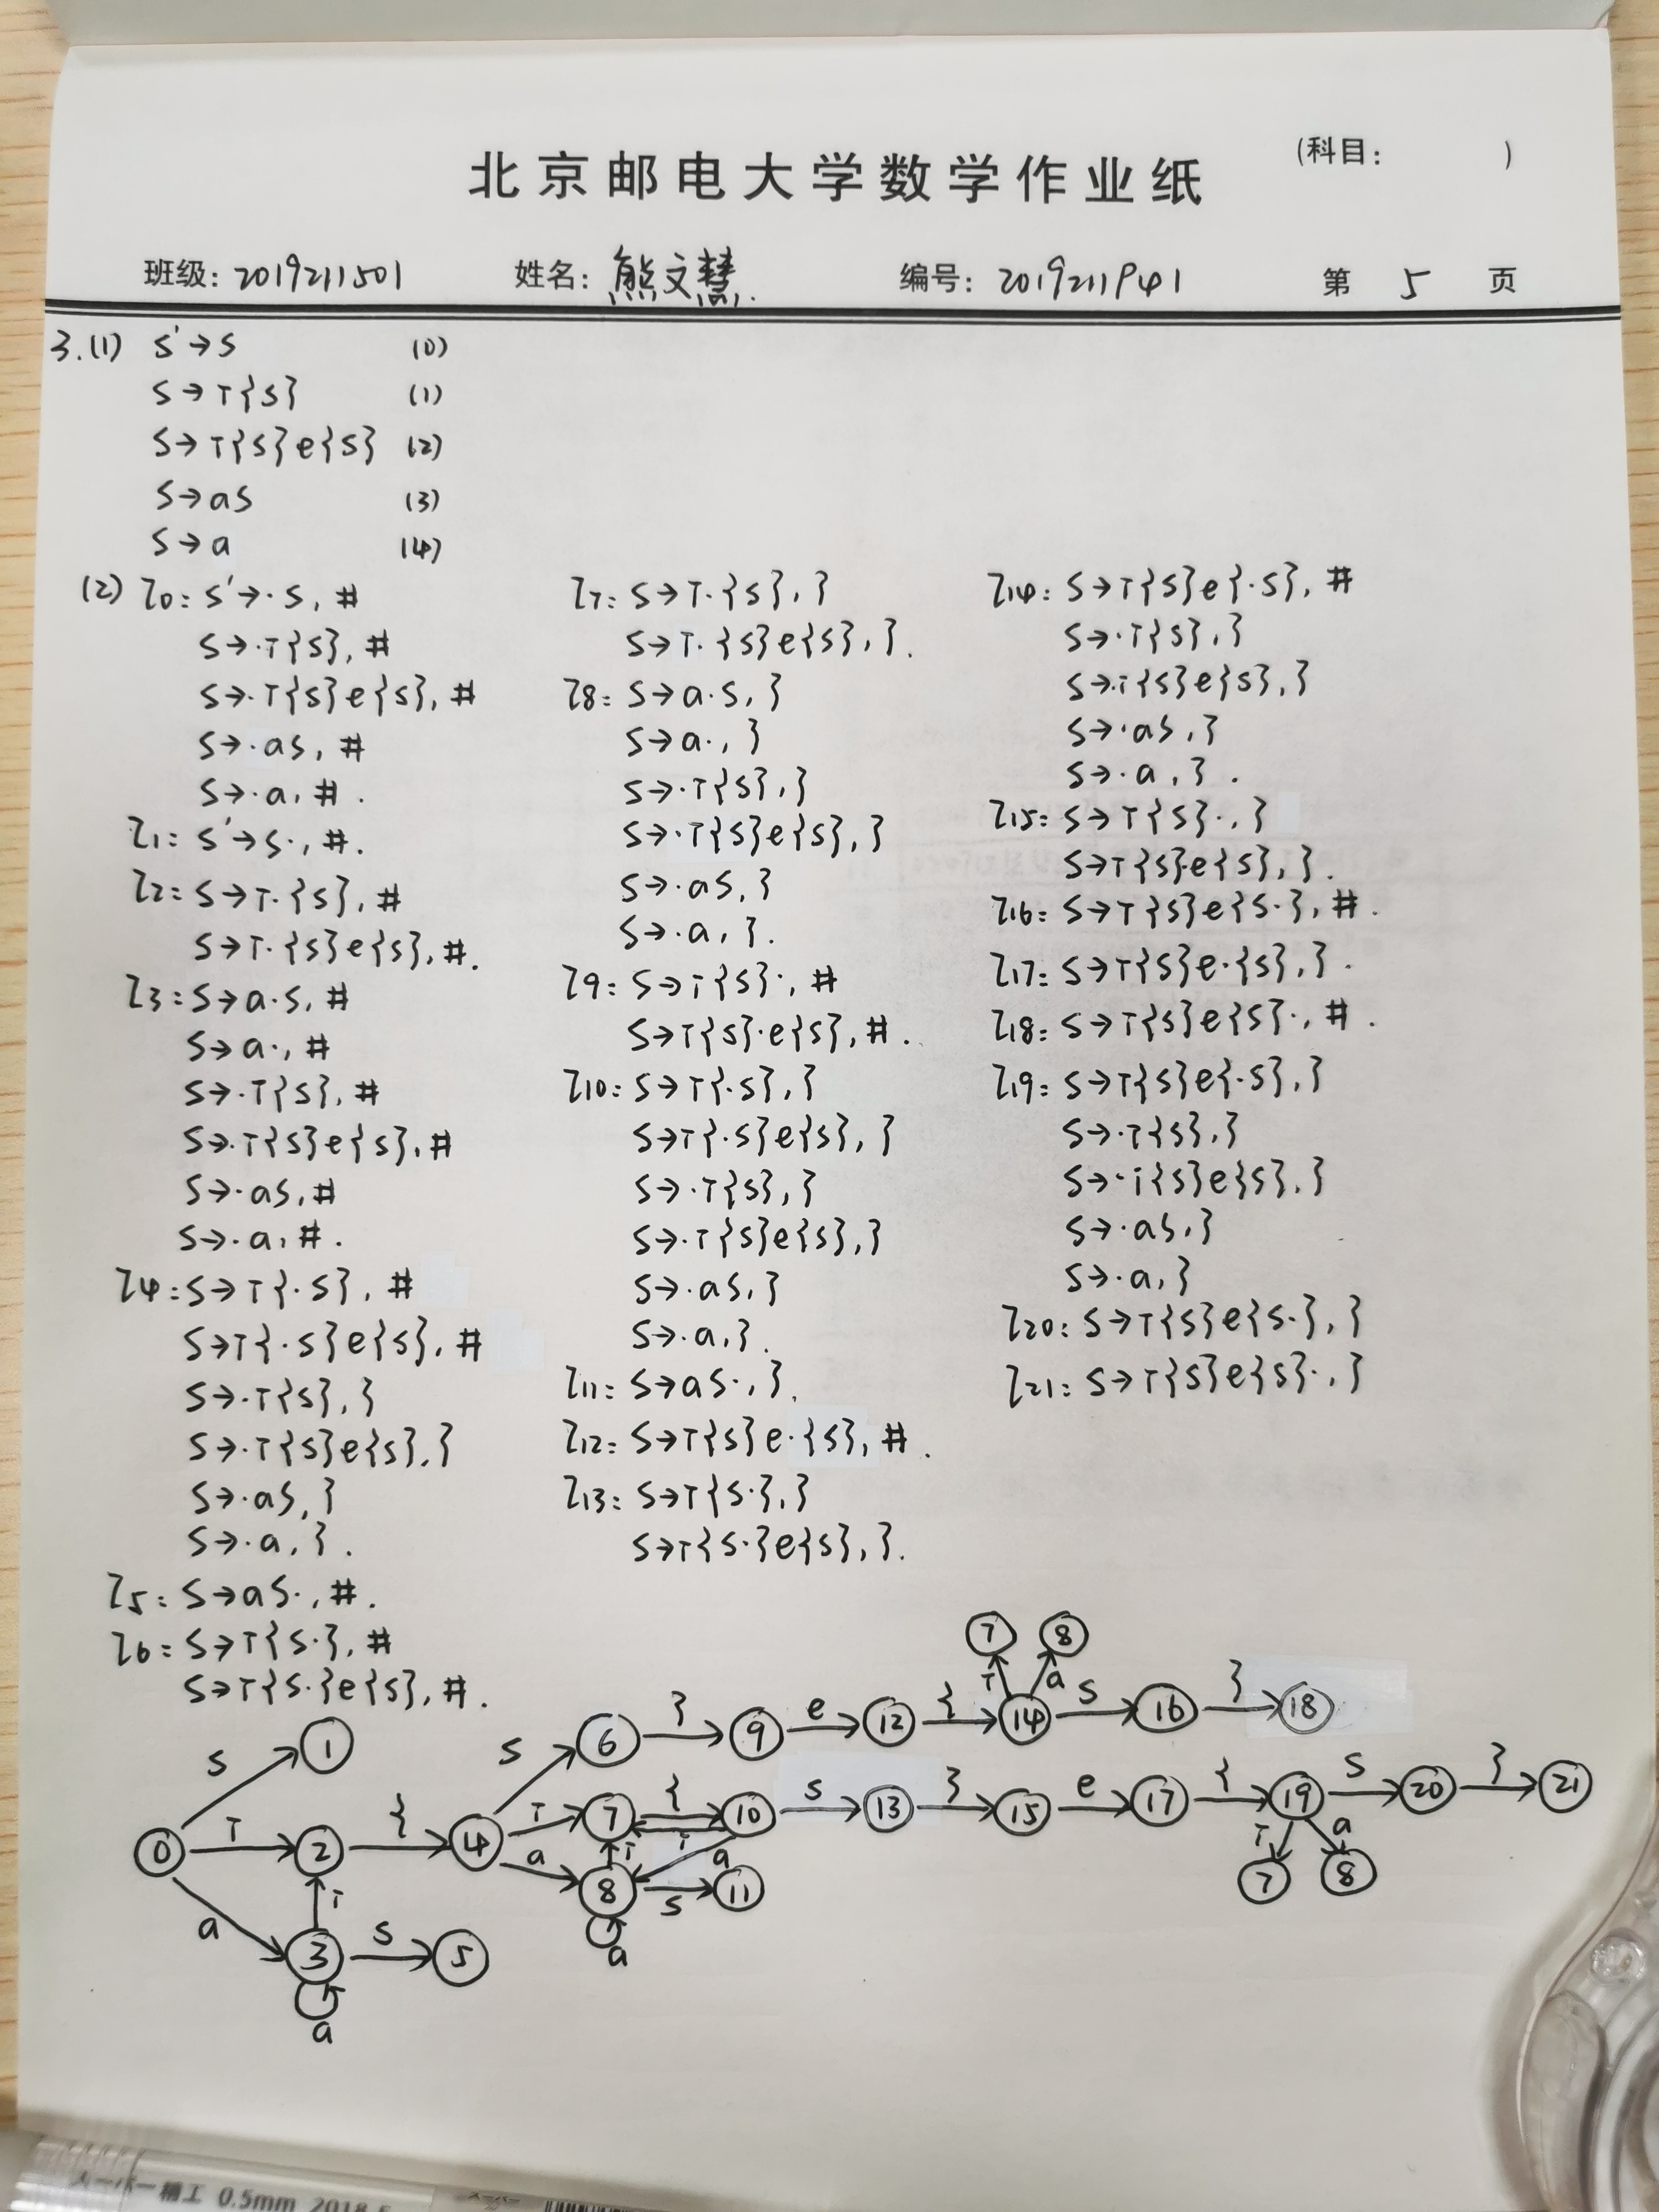 北京邮电大学数学作业纸
(科目: )
班级: 2019211501 姓名: 熊文慧 编号: 2019211941 第 5 页
3.(1) S'→S (0)
S→T{S} (1)
S→T{S}e{S} (2)
S→aS (3)
S→a (4)
(2) I0: S'→·S, #
S→·T{S}, #
S→·T{S}e{S}, #
S→·aS, #
S→·a, #.
I1: S'→S·, #.
I2: S→T·{S}, #
S→T·{S}e{S}, #.
I3: S→a·S, #
S→a·, #
S→·T{S}, #
S→·T{S}e{S}, #
S→·aS, #
S→·a, #.
I4: S→T{·S}, #
S→T{·S}e{S}, #
S→·T{S}, }
S→·T{S}e{S}, }
S→·aS, }
S→·a, }.
I5: S→aS·, #.
I6: S→T{S·}, #
S→T{S·}e{S}, #.
I7: S→T·{S}, }
S→T·{S}e{S}, }.
I8: S→a·S, }
S→a·, }
S→·T{S}, }
S→·T{S}e{S}, }
S→·aS, }
S→·a, }.
I9: S→i{S}·, #
S→T{S}·e{S}, #.
I10: S→T{·S}, }
S→T{·S}e{S}, }
S→·T{S}, }
S→·T{S}e{S}, }
S→·aS, }
S→·a, }.
I11: S→aS·, }.
I12: S→T{S}e·{S}, #.
I13: S→T{S·}, }
S→T{S·}e{S}, }.
I14: S→T{S}e{·S}, #
S→·T{S}, }
S→·i{S}e{S}, }
S→·aS, }
S→·a, }.
I15: S→T{S}·, }
S→T{S}·e{S}, }.
I16: S→T{S}e{S·}, #.
I17: S→T{S}e·{S}, }.
I18: S→T{S}e{S}·, #.
I19: S→T{S}e{·S}, }
S→·T{S}, }
S→·i{S}e{S}, }
S→·aS, }
S→·a, }
I20: S→T{S}e{S·}, }
I21: S→T{S}e{S}·, }
7 8
T a
S 1 S 6 } 9 e 12 { 14 S 16 } 18
0 T 2 { 4 T 7 { 10 S 13 } 15 e 17 { 19 S 20 } 21
i a T a T a
8 S 11 7 8
a T a
3 S 5
a
0.5mm 2018.5